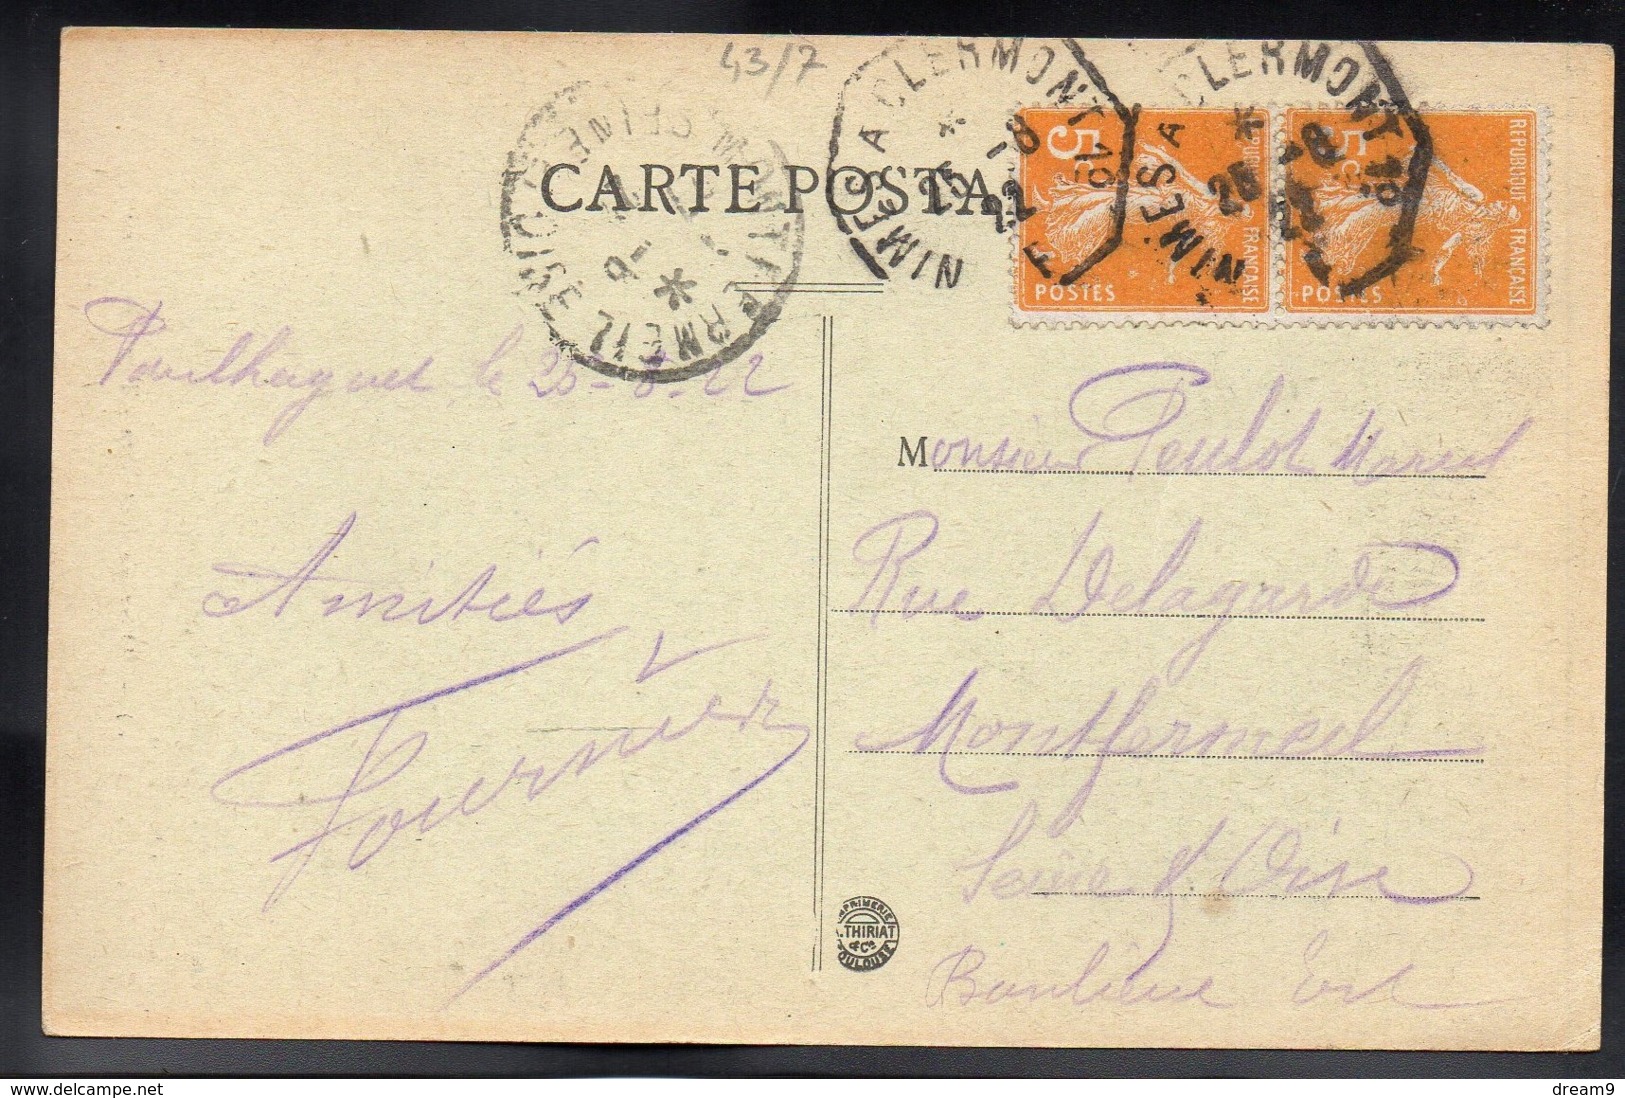 43/7
CARTE POSTA
MONTFERMEIL
SEINE
NIMES A CLERMONT
25
-8
22
NIMES A CLERMONT 1º
25
-8
22
5c
POSTES
RÉPUBLIQUE FRANÇAISE
5c
POSTES
Paulhaguet le 25-8-22
Amitiés
Fournier
Monsieur Poulot Marcel
Rue Delagarde
Montfermeil
Seine et Oise
Banlieue Est
IMPRIMERIE
THIRIAT
& Cº
TOULOUSE
delcampe.net
dream9